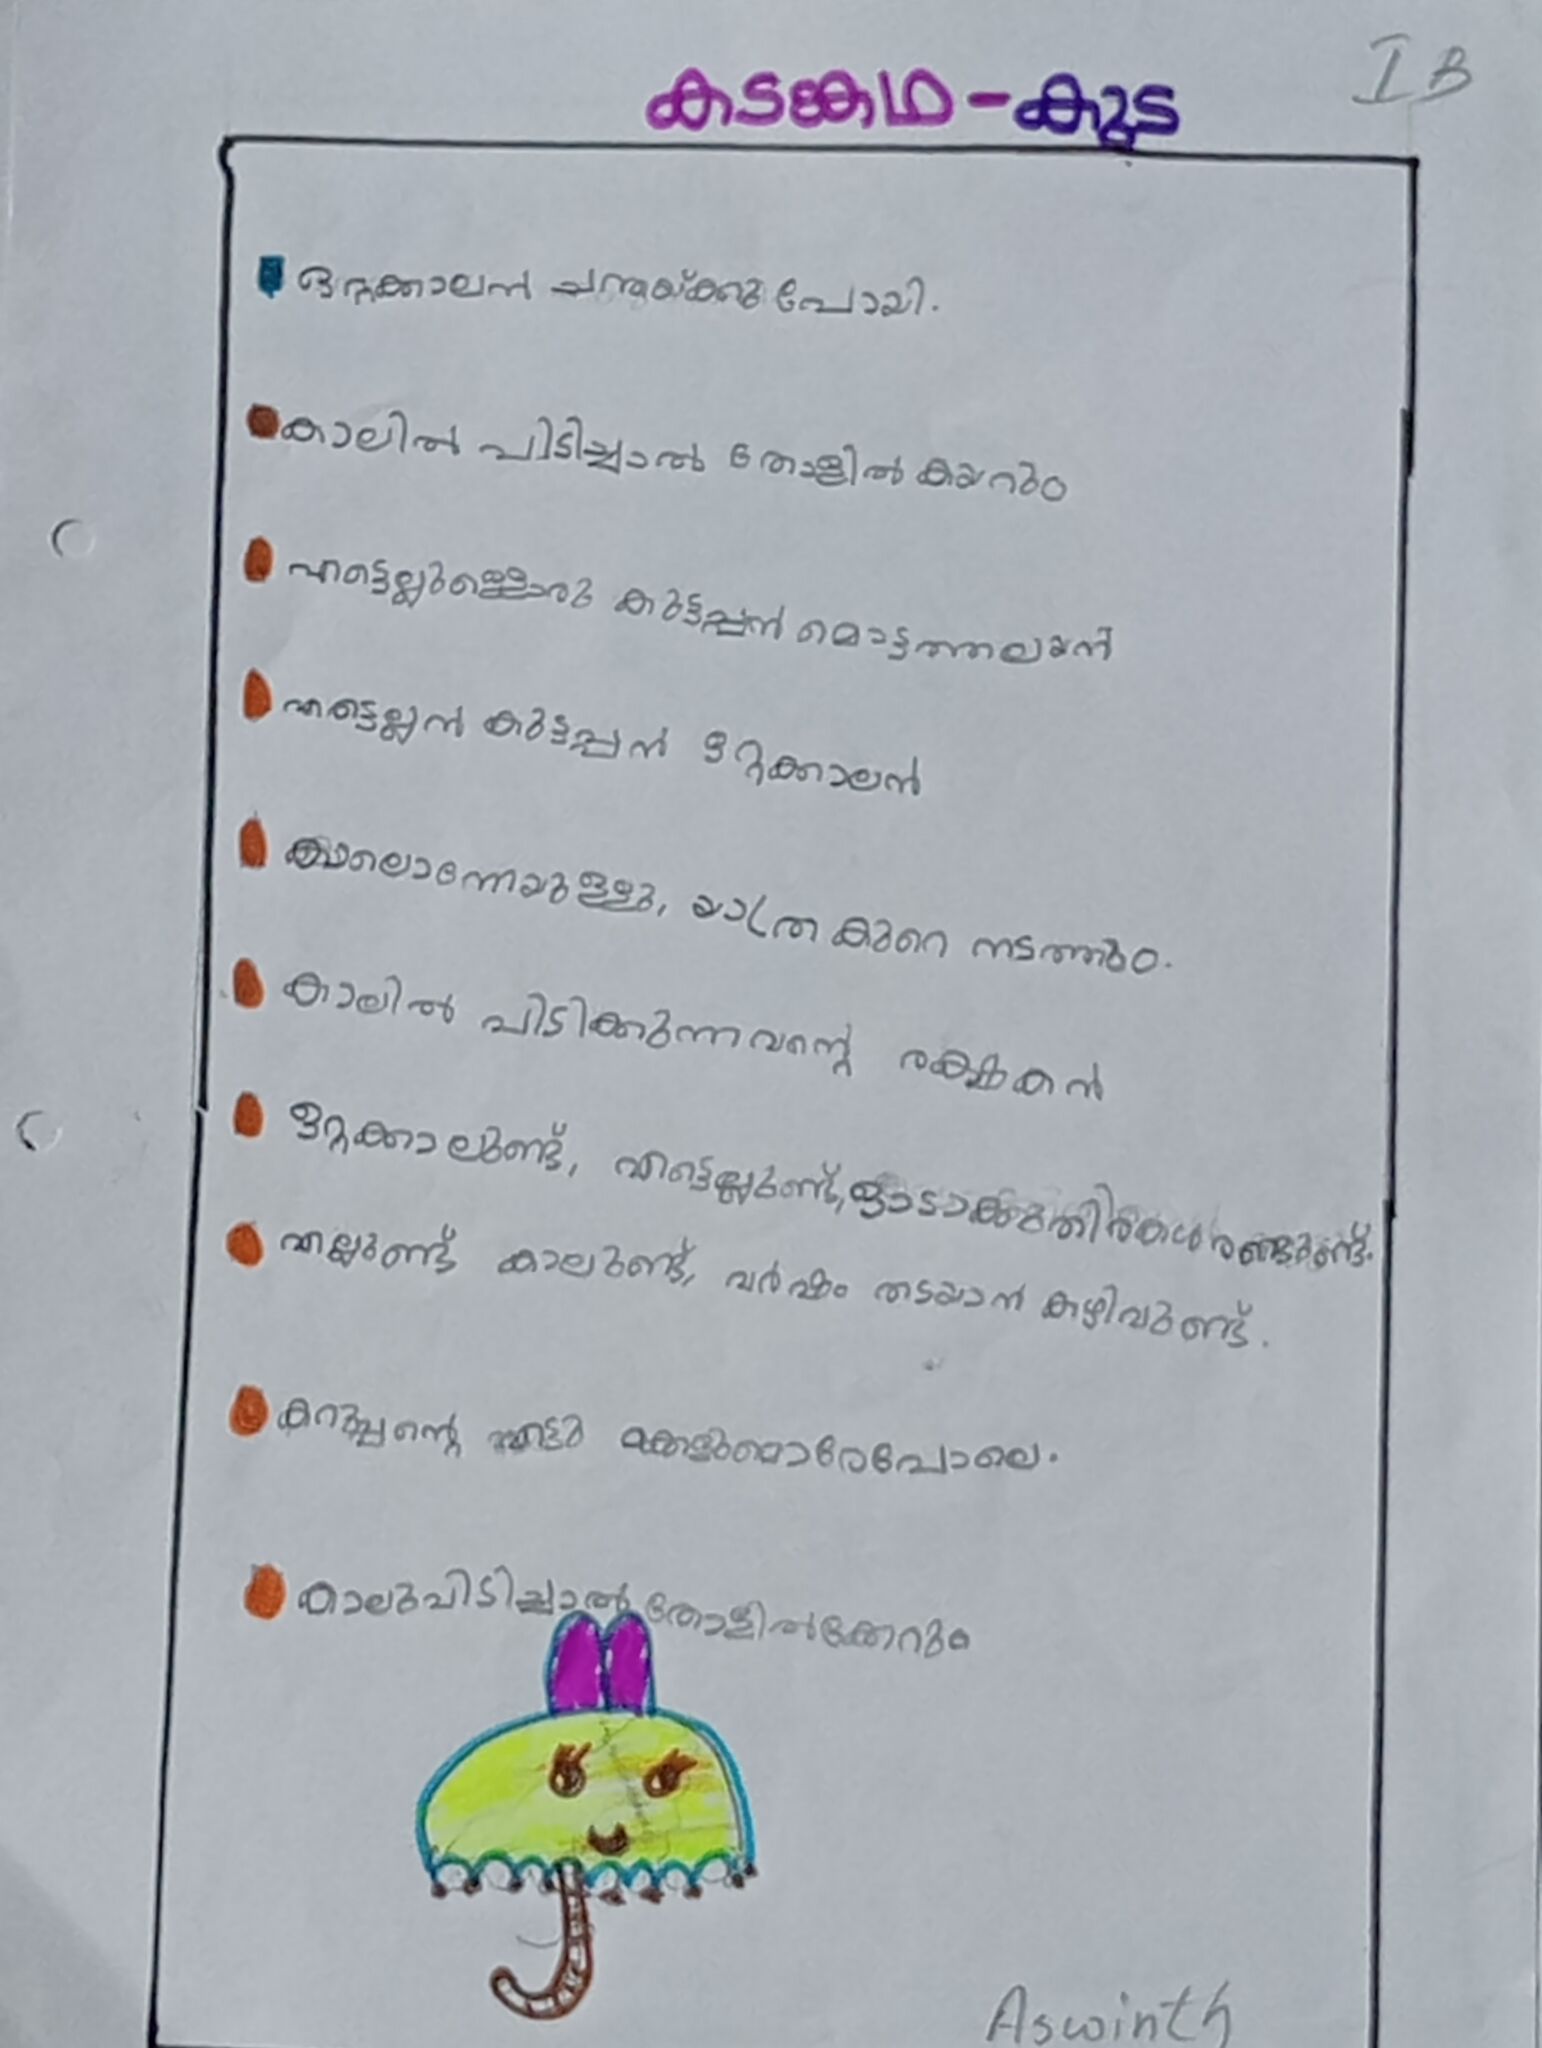 I B
കടങ്കഥ - കുട
ഒറ്റക്കാലൻ ചന്തയ്ക്കു പോയി.
കാലിൽ പിടിച്ചാൽ തോളിൽ കയറും
എട്ടെല്ലുള്ളൊരു കുട്ടപ്പൻ മൊട്ടത്തലയൻ
എട്ടെല്ലൻ കുട്ടപ്പൻ ഒറ്റക്കാലൻ
കാലൊന്നേയുള്ളൂ, യാത്ര കുറെ നടത്തും.
കാലിൽ പിടിക്കുന്നവന്റെ രക്ഷകൻ
ഒറ്റക്കാലുണ്ട്, എട്ടെല്ലുണ്ട്,
എല്ലുണ്ട് കാലുണ്ട്, വർഷം തടയാൻ കഴിവുണ്ട്.
കറുപ്പന്റെ എട്ടു മക്കളുമൊരേപോലെ.
കാലുപിടിച്ചാൽ തോളിൽക്കേറും
Aswinth